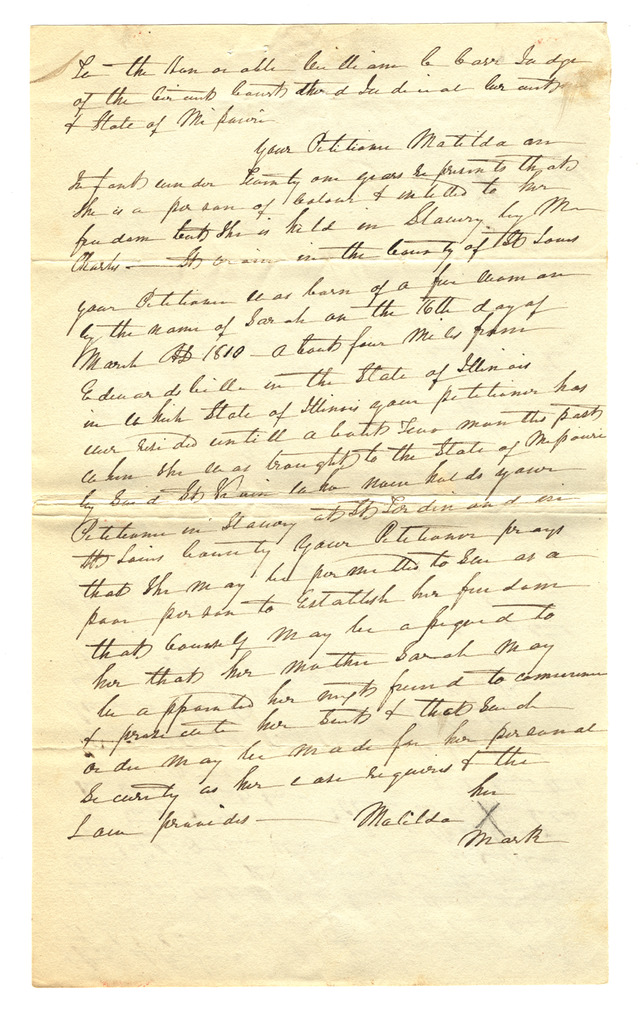 To the Honorable William C Carr Judge
of the Circuit Court third Judicial Circuit
& State of Missouri
Your Petitioner Matilda an
Infant under twenty one years represents that
She is a person of Colour & intitled to her
freedom but She is held in Slavery by M
Charles — St Vrain in the County of St Louis
your Petitioner was born of a free woman
by the name of Sarah on the 16th day of
March AD 1810 — about four Miles from
Edwardsville in the State of Illinois
in which State of Illinois your petitioner has
ever resided untill about two months past
when she was brought to the State of Missouri
by Said St Vrain who now holds your
Petitioner in Slavery at St Ferdinand in
St Louis County your Petitioner prays
that She may be permitted to Sue as a
poor person to Establish her freedom
that Counsel may be assigned to
her that her mother Sarah may
be appointed her next friend to commence
& prosecute her Suit & that Such
order may be made for her personal
Security as her case requires & the
Law provides — Matilda her
X
Mark